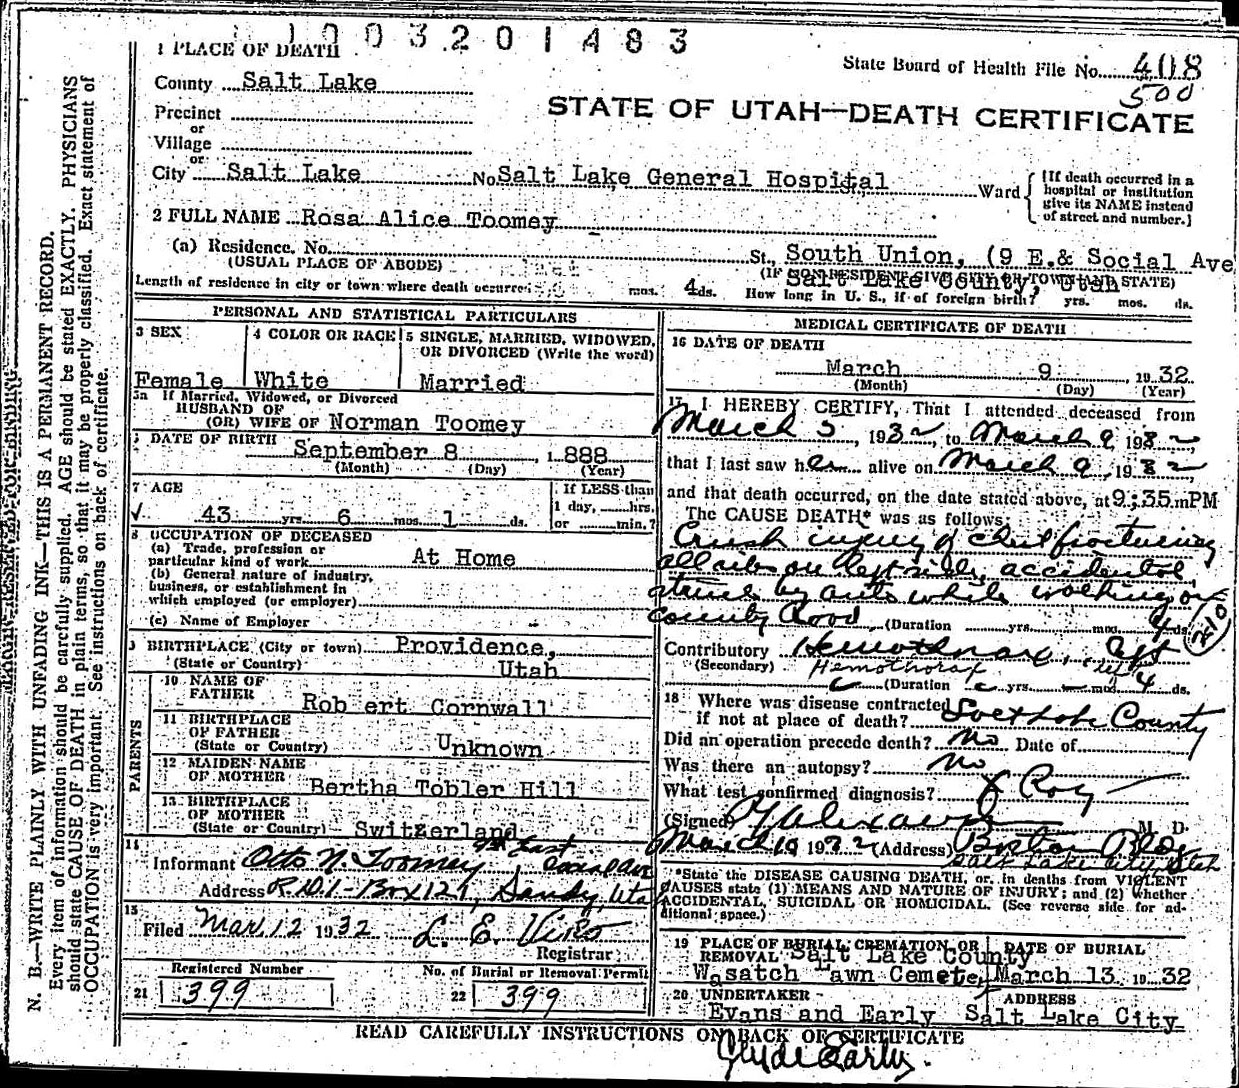 1003201483
1 PLACE OF DEATH
State Board of Health File No. 408
500
County Salt Lake
STATE OF UTAH—DEATH CERTIFICATE
Precinct
or
Village
or
City Salt Lake No. Salt Lake General Hospital Ward
[If death occurred in a
hospital or institution
give its NAME instead
of street and number.]
2 FULL NAME Rosa Alice Toomey
(a) Residence. No. St., South Union, (9 E.& Social Ave
(USUAL PLACE OF ABODE) (IF NON-RESIDENT GIVE CITY OR TOWN AND STATE)
Salt Lake County, Utah
Length of residence in city or town where death occurred mos. 4 ds. How long in U. S., if of foreign birth? yrs. mos. ds.
PERSONAL AND STATISTICAL PARTICULARS
3 SEX
Female
4 COLOR OR RACE
White
5 SINGLE, MARRIED, WIDOWED,
OR DIVORCED (Write the word)
Married
5a If Married, Widowed, or Divorced
HUSBAND OF
(OR) WIFE OF Norman Toomey
DATE OF BIRTH
September 8, 1888
(Month) (Day) (Year)
7 AGE
43 yrs. 6 mos. 1 ds.
If LESS than
1 day, hrs.
or min.?
8 OCCUPATION OF DECEASED
(a) Trade, profession or
particular kind of work At Home
(b) General nature of industry,
business, or establishment in
which employed (or employer)
(c) Name of Employer
9 BIRTHPLACE (City or town) Providence,
(State or Country) Utah
PARENTS
10 NAME OF
FATHER Robert Cornwall
11 BIRTHPLACE
OF FATHER
(State or Country) Unknown
12 MAIDEN NAME
OF MOTHER
Bertha Tobler Hill
13 BIRTHPLACE
OF MOTHER
(State or Country) Switzerland
14
Informant Otto N. Toomey 9th East
Address R.D.1-Box 121, Sandy, Uta
15
Filed Mar. 12 1932 L. E. Viko
Registrar
Registered Number
21 399
No. of Burial or Removal Permit
22 399
MEDICAL CERTIFICATE OF DEATH
16 DATE OF DEATH
March 9, 1932
(Month) (Day) (Year)
17 I HEREBY CERTIFY, That I attended deceased from
March 5, 1932, to March 9 1932
that I last saw her alive on March 9, 1932
and that death occurred, on the date stated above, at 9:35 m PM
The CAUSE DEATH* was as follows:
Crush injury of chest fracturing
all ribs on left side, accidental,
struck by auto while walking on
county Road (Duration yrs. mos. 4 ds.
210
Contributory Hemothorax, left
(Secondary) Hemothorax left
(Duration yrs. mos. 4 ds.
18 Where was disease contracted
if not at place of death? Salt Lake County
Did an operation precede death? No Date of
Was there an autopsy? No
What test confirmed diagnosis? X Ray
(Signed) M. D.
March 10 1932 (Address) Boston Bldg
Salt Lake City, Utah
*State the DISEASE CAUSING DEATH, or, in deaths from VIOLENT
CAUSES state (1) MEANS AND NATURE OF INJURY; and (2) whether
ACCIDENTAL, SUICIDAL OR HOMICIDAL. (See reverse side for ad-
ditional space.)
19 PLACE OF BURIAL, CREMATION OR
REMOVAL Salt Lake County
Wasatch Lawn Cemete
DATE OF BURIAL
March 13, 1932
20 UNDERTAKER
Evans and Early
ADDRESS
Salt Lake City
READ CAREFULLY INSTRUCTIONS ON BACK OF CERTIFICATE
Clyde Early.
N. B.—WRITE PLAINLY WITH UNFADING INK—THIS IS A PERMANENT RECORD.
Every item of information should be carefully supplied. AGE should be stated EXACTLY. PHYSICIANS
should state CAUSE OF DEATH in plain terms, so that it may be properly classified. Exact statement of
OCCUPATION is very important. See instructions on back of certificate.